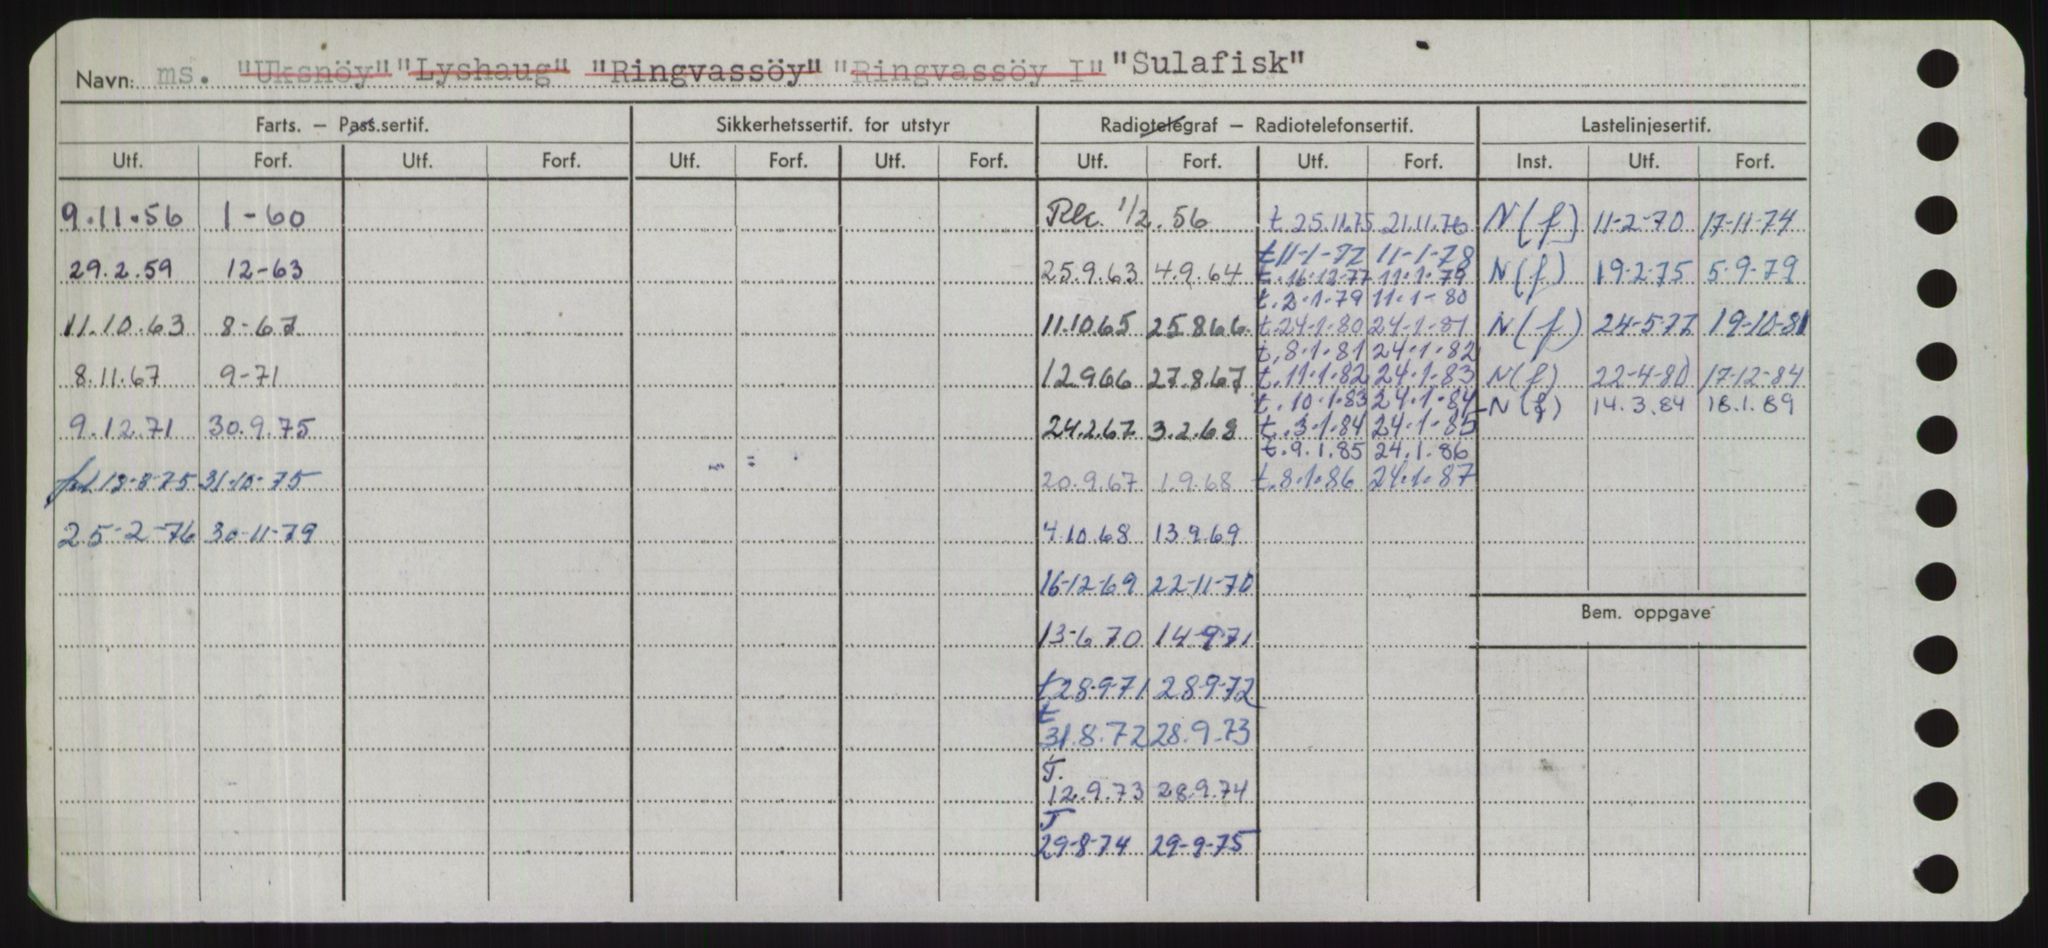 Navn: ms. "Uksnöy" "Lyshaug" "Ringvassöy" "Ringvassöy I" "Sulafisk"
Farts. – Pass.sertif. Sikkerhetssertif. for utstyr Radiotelegraf – Radiotelefonsertif. Lastelinjesertif.
Utf. Forf. Utf. Forf. Utf. Forf. Utf. Forf. Utf. Forf. Utf. Forf. Inst. Utf. Forf.
9.11.56 1-60 1/2.56 t.25.11.75 21.11.76 N(f) 11-2-70 17-11-74
t 11-1-77 11-1-78
29.2.59 12-63 25.9.63 4.9.64 t.16-12-77 11.1.79 N(f) 19-2-75 5-9-79
t.2.1.79 11.1-80
11.10.63 8-67 11.10.65 25.8.66 t.24-1-80 24-1-81 N(f) 24-5-77 19-10-81
t.8.1.81 24.1.82
8.11.67 9-71 12.9.66 27.8.67 t.11.1.82 24.1.83 N(f) 22-4-80 17-12-84
t.10.1.83 24.1.84 N(f) 14.3.84 18.1.89
9.12.71 30.9.75 24.2.67 3.2.68 t.3-1-84 24-1-85
t.9.1.85 24.1.86
18-8-75 31-10-75 20.9.67 1.9.68 t.8.1.86 24.1.87
25-2-76 30-11-79 4.10.68 13.9.69
16-12-69 22-11-70
Bem. oppgave
13-6.70 14-9-71
t 28-9-71 28-9-72
t
31.8.72 28.9.73
T.
12.9.73 28.9.74
T
29-8-74 29-9-75